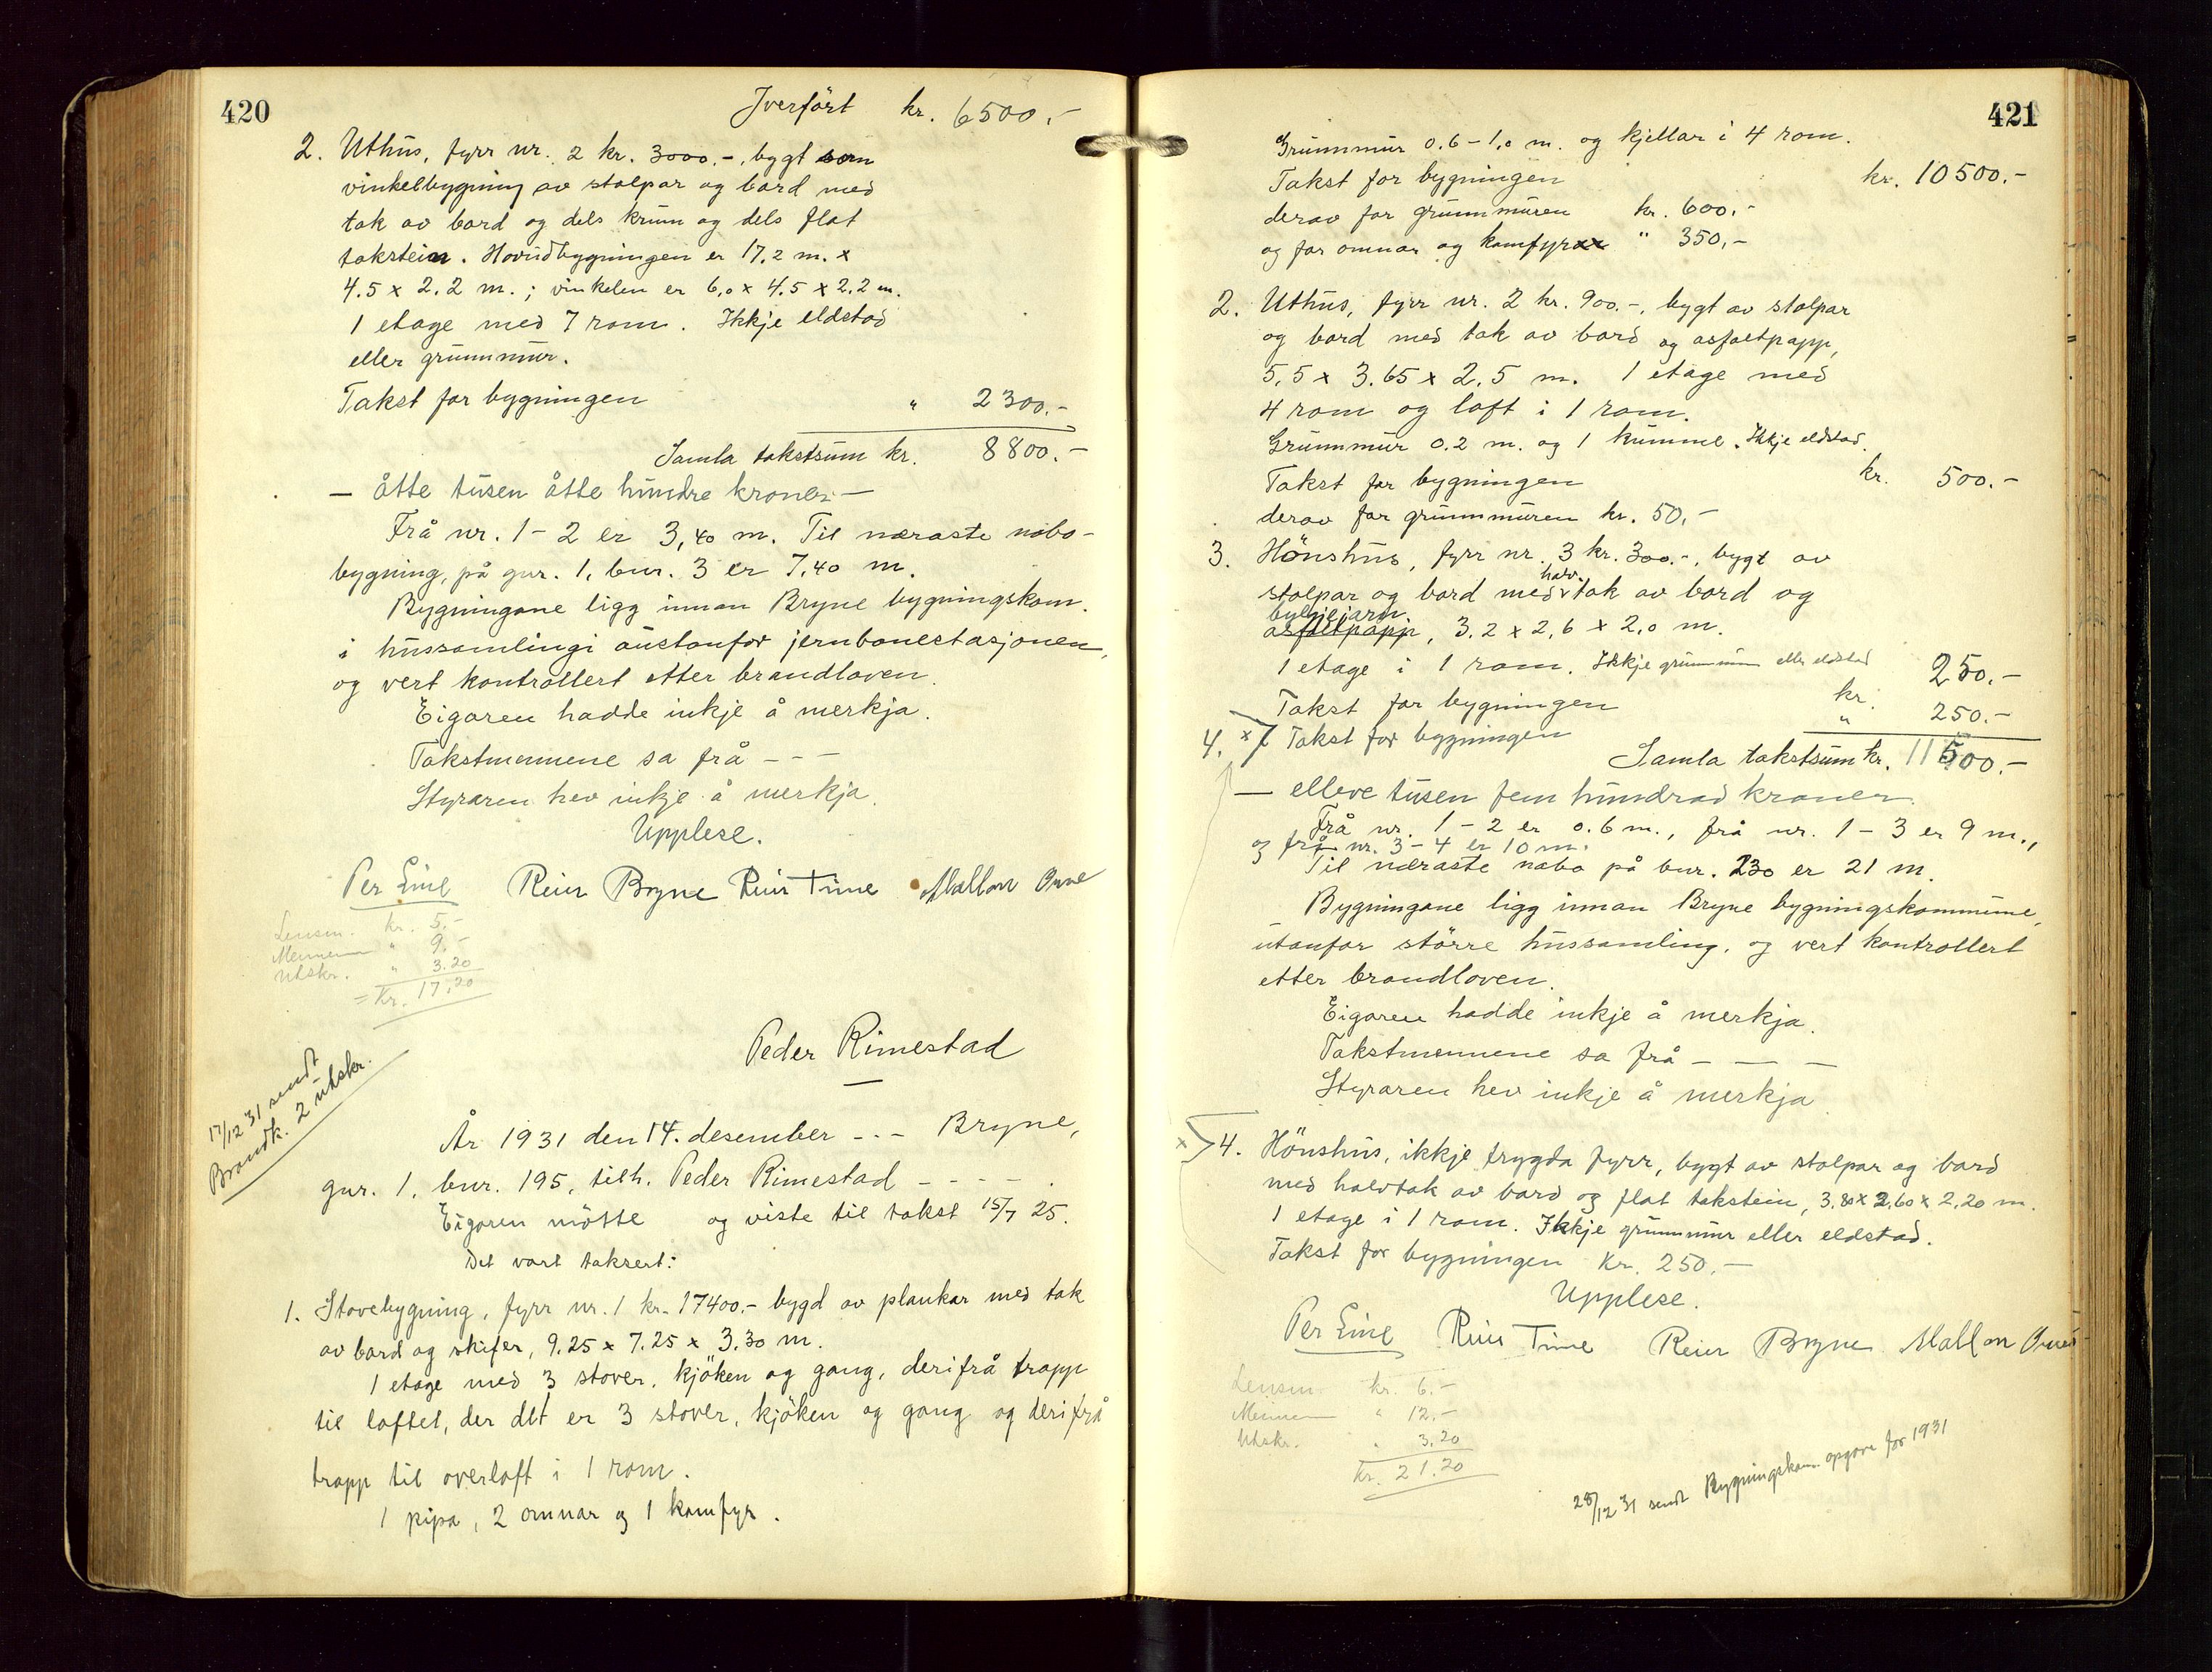 420
Iverført kr. 6500.-
2. Uthus, fyrr nr. 2 kr. 3000.-, bygt som
vinkelbygning av stolpar og bord med
tak av bord og dels krum og dels flat
takstein. Hovudbygningen er 17.2 m. x
4.5 x 2.2 m.; vinkelen er 6,0 x 4.5 x 2.2 m.
1 etage med 7 rom. Ikkje eldstad
eller grunnmur.
Takst for bygningen " 2300.-
Samla takstsum kr. 8800.-
- åtte tusen åtte hundre kroner -
Frå nr. 1-2 er 3,40 m. Til næraste nabo-
bygning, på gnr. 1, bnr. 3 er 7,40 m.
Bygningane ligg innan Bryne bygningskom.
i hussamlingi austanfor jernbanestasjonen,
og vert kontrollert etter brandloven.
Eigaren hadde inkje å merkja.
Takstmennene sa frå - - -
Styraren hev inkje å merkja.
Upplese.
Per Line Reier Bryne Reier Time Mallon
Lensm. kr. 5.-
Mennene " 9.-
Utskr. " 3.20
= Kr. 17.20
Peder Rimestad
17/12 31 sendt
Brandk. 2 utskr.
År 1931 den 14. desember - - - Bryne,
gnr. 1, bnr. 195, tilh. Peder Rimestad - - - -
Eigaren møtte og viste til takst 15/7 25.
Det vart taksert:
1. Stovebygning, fyrr nr. 1 kr. 17400.- bygd av plankar med tak
av bord og skifer, 9.25 x 7.25 x 3.30 m.
1 etage med 3 stover, kjøken og gang, derifrå trapp
til loftet, der det er 3 stover, kjøken og gang og derifrå
trapp til overloft i 1 rom.
1 pipa, 2 omnar og 1 komfyr.
421
Grunnmur 0.6-1,0 m. og kjellar i 4 rom.
Takst for bygningen kr. 10500.-
derav for grunnmuren kr. 600.-
og for omnar og komfyrxx " 350,-
2. Uthus, fyrr nr. 2 kr. 900.-, bygt av stolpar
og bord med tak av bord og asfaltpapp,
5,5 x 3.65 x 2,5 m. 1 etage med
4 rom og loft i 1 rom.
Grunnmur 0.2 m. og 1 kumme. Ikkje eldstad.
Takst for bygningen kr. 500.-
derav for grunnmuren kr. 50,-
3. Hönshus, fyrr nr. 3 kr. 300.-, bygt av
halv-
stolpar og bord med tak av bord og
bylgjejarn
asfaltpapp, 3.2 x 2,6 x 2,0 m.
1 etage i 1 rom. Ikkje grunnmur eller eldstad
Takst for bygningen kr. 250.-
4. x7 Takst for bygningen " 250.-
Samla takstsum kr. 11500.-
- elleve tusen fem hundrad kroner.
Frå nr. 1-2 er 0.6 m., frå nr. 1-3 er 9 m.,
og frå nr. 3-4 er 10 m.
Til næraste nabo på bnr. 230 er 21 m.
Bygningane ligg innan Bryne bygningskommune,
utanfor større hussamling, og vert kontrollert
etter brandloven.
Eigaren hadde inkje å merkja.
Takstmennene sa frå - - -
Styraren hev inkje å merkja.
x 4. Hönshus, ikkje trygda fyrr, bygt av stolpar og bord
med halvtak av bord og flat takstein, 3.80 x 2,60 x 2,20 m.
1 etage i 1 rom. Ikkje grunnmur eller eldstad.
Takst for bygningen Kr. 250.-
Upplese.
Per Line Reier Time Reier Bryne Mallon
Lensm. kr. 6.-
Mennene " 12.-
Utskr. " 3.20
Kr. 21.20
28/12 31 sendt Bygningskom. opgave for 1931